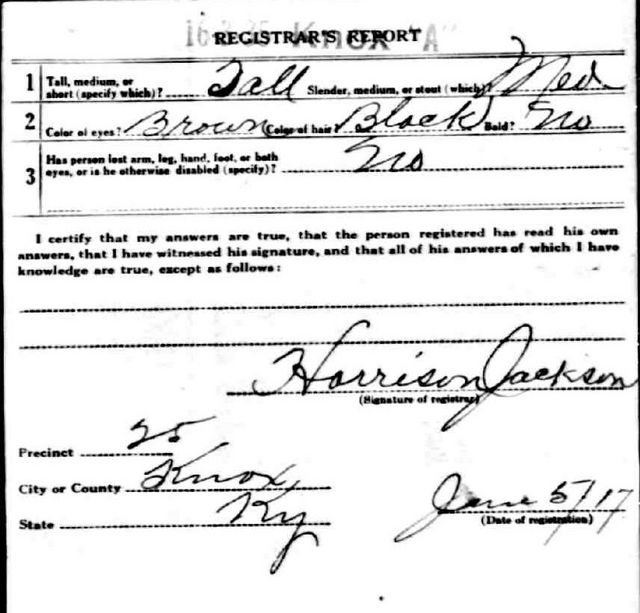 16-3-25 Knox "A"
REGISTRAR'S REPORT
1 Tall, medium, or short (specify which)? Tall Slender, medium, or stout (which)? Med
2 Color of eyes? Brown Color of hair? Black Bald? No
3 Has person lost arm, leg, hand, foot, or both eyes, or is he otherwise disabled (specify)? No
I certify that my answers are true, that the person registered has read his own
answers, that I have witnessed his signature, and that all of his answers of which I have
knowledge are true, except as follows:
Harrison Jackson
(Signature of registrar)
Precinct 25
City or County Knox,
State Ky
June 5/17
(Date of registration)